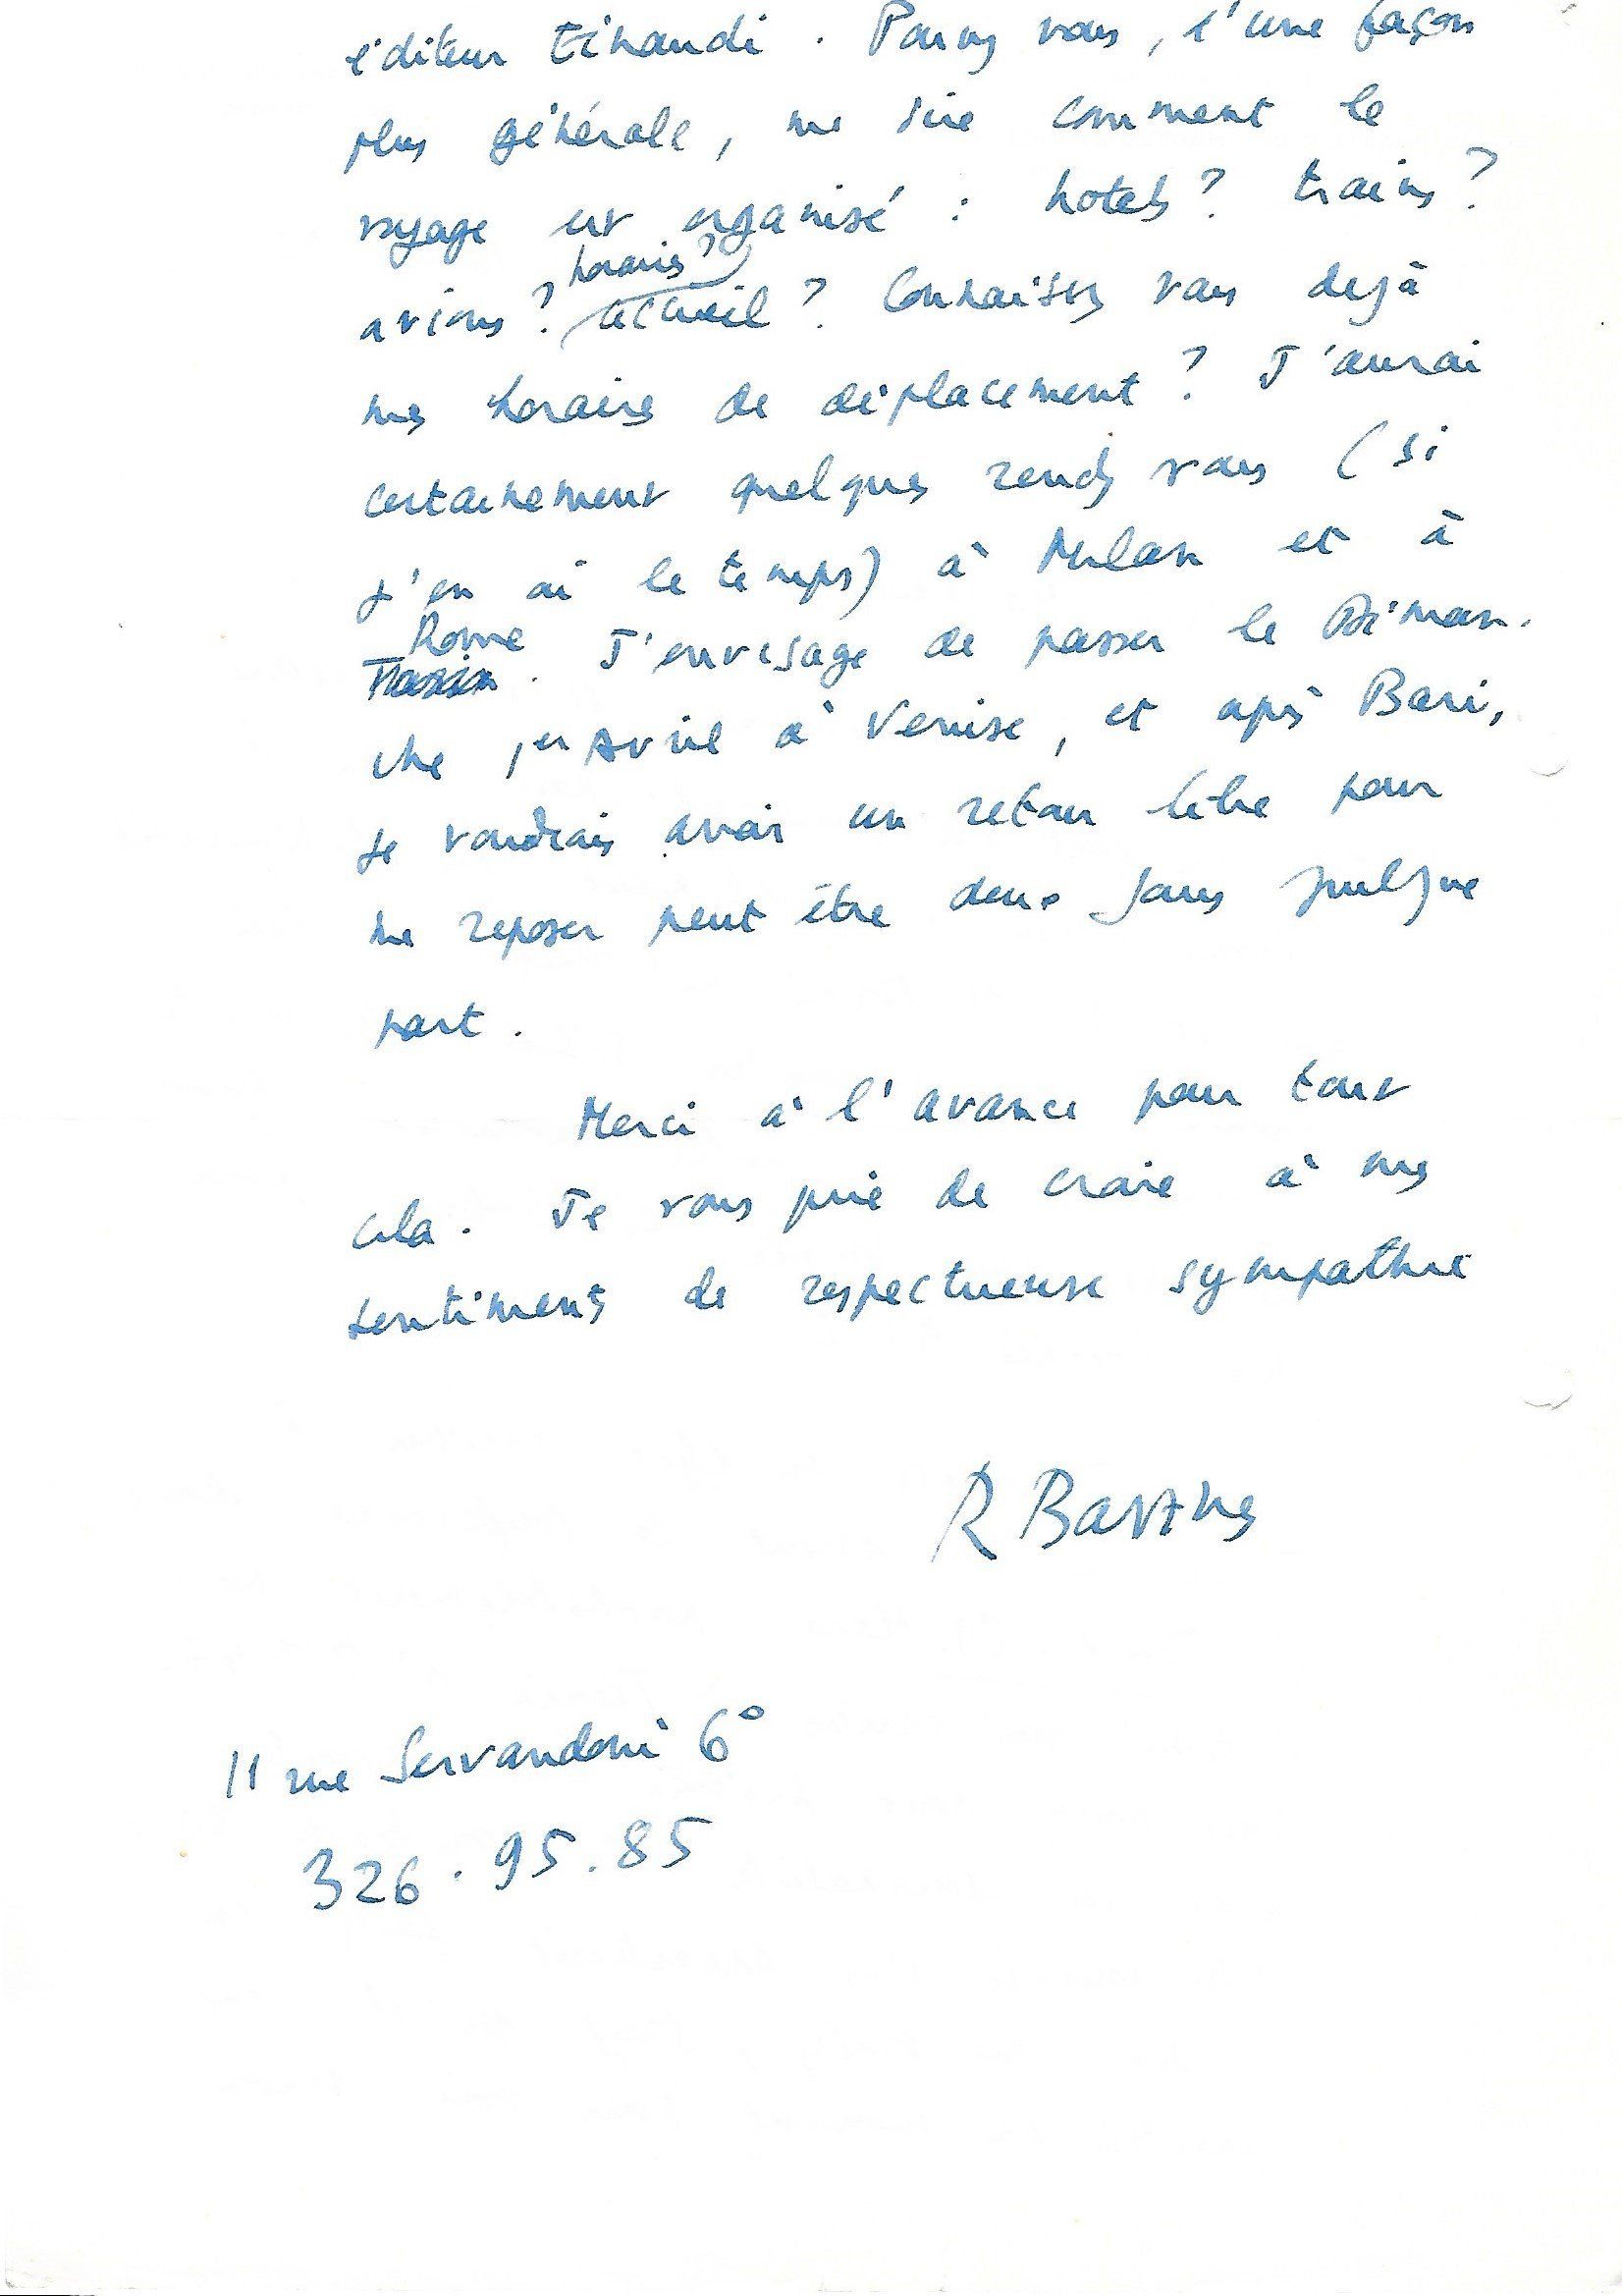 éditeur Einaudi. Pouvez vous, d'une façon
plus générale, me dire comment le
voyage est organisé : hotels ? trains ?
horaires ?
avions ? accueil ? Connaissez vous dejà
mes horaires de déplacement ? J'aurai
certainement quelques rendez vous (si
j'en ai le temps) à Milan et à
Rome
. J'envisage de passer le Diman-
che 1er Avril à Venise, et après Bari,
je voudrais avoir un retour libre pour
me reposer peut être deux jours quelque
part.
Merci à l'avance pour tout
cela. Je vous prie de croire à mes
sentiments de respectueuse sympathie
R Barthes
11 rue Servandoni 6°
326.95.85